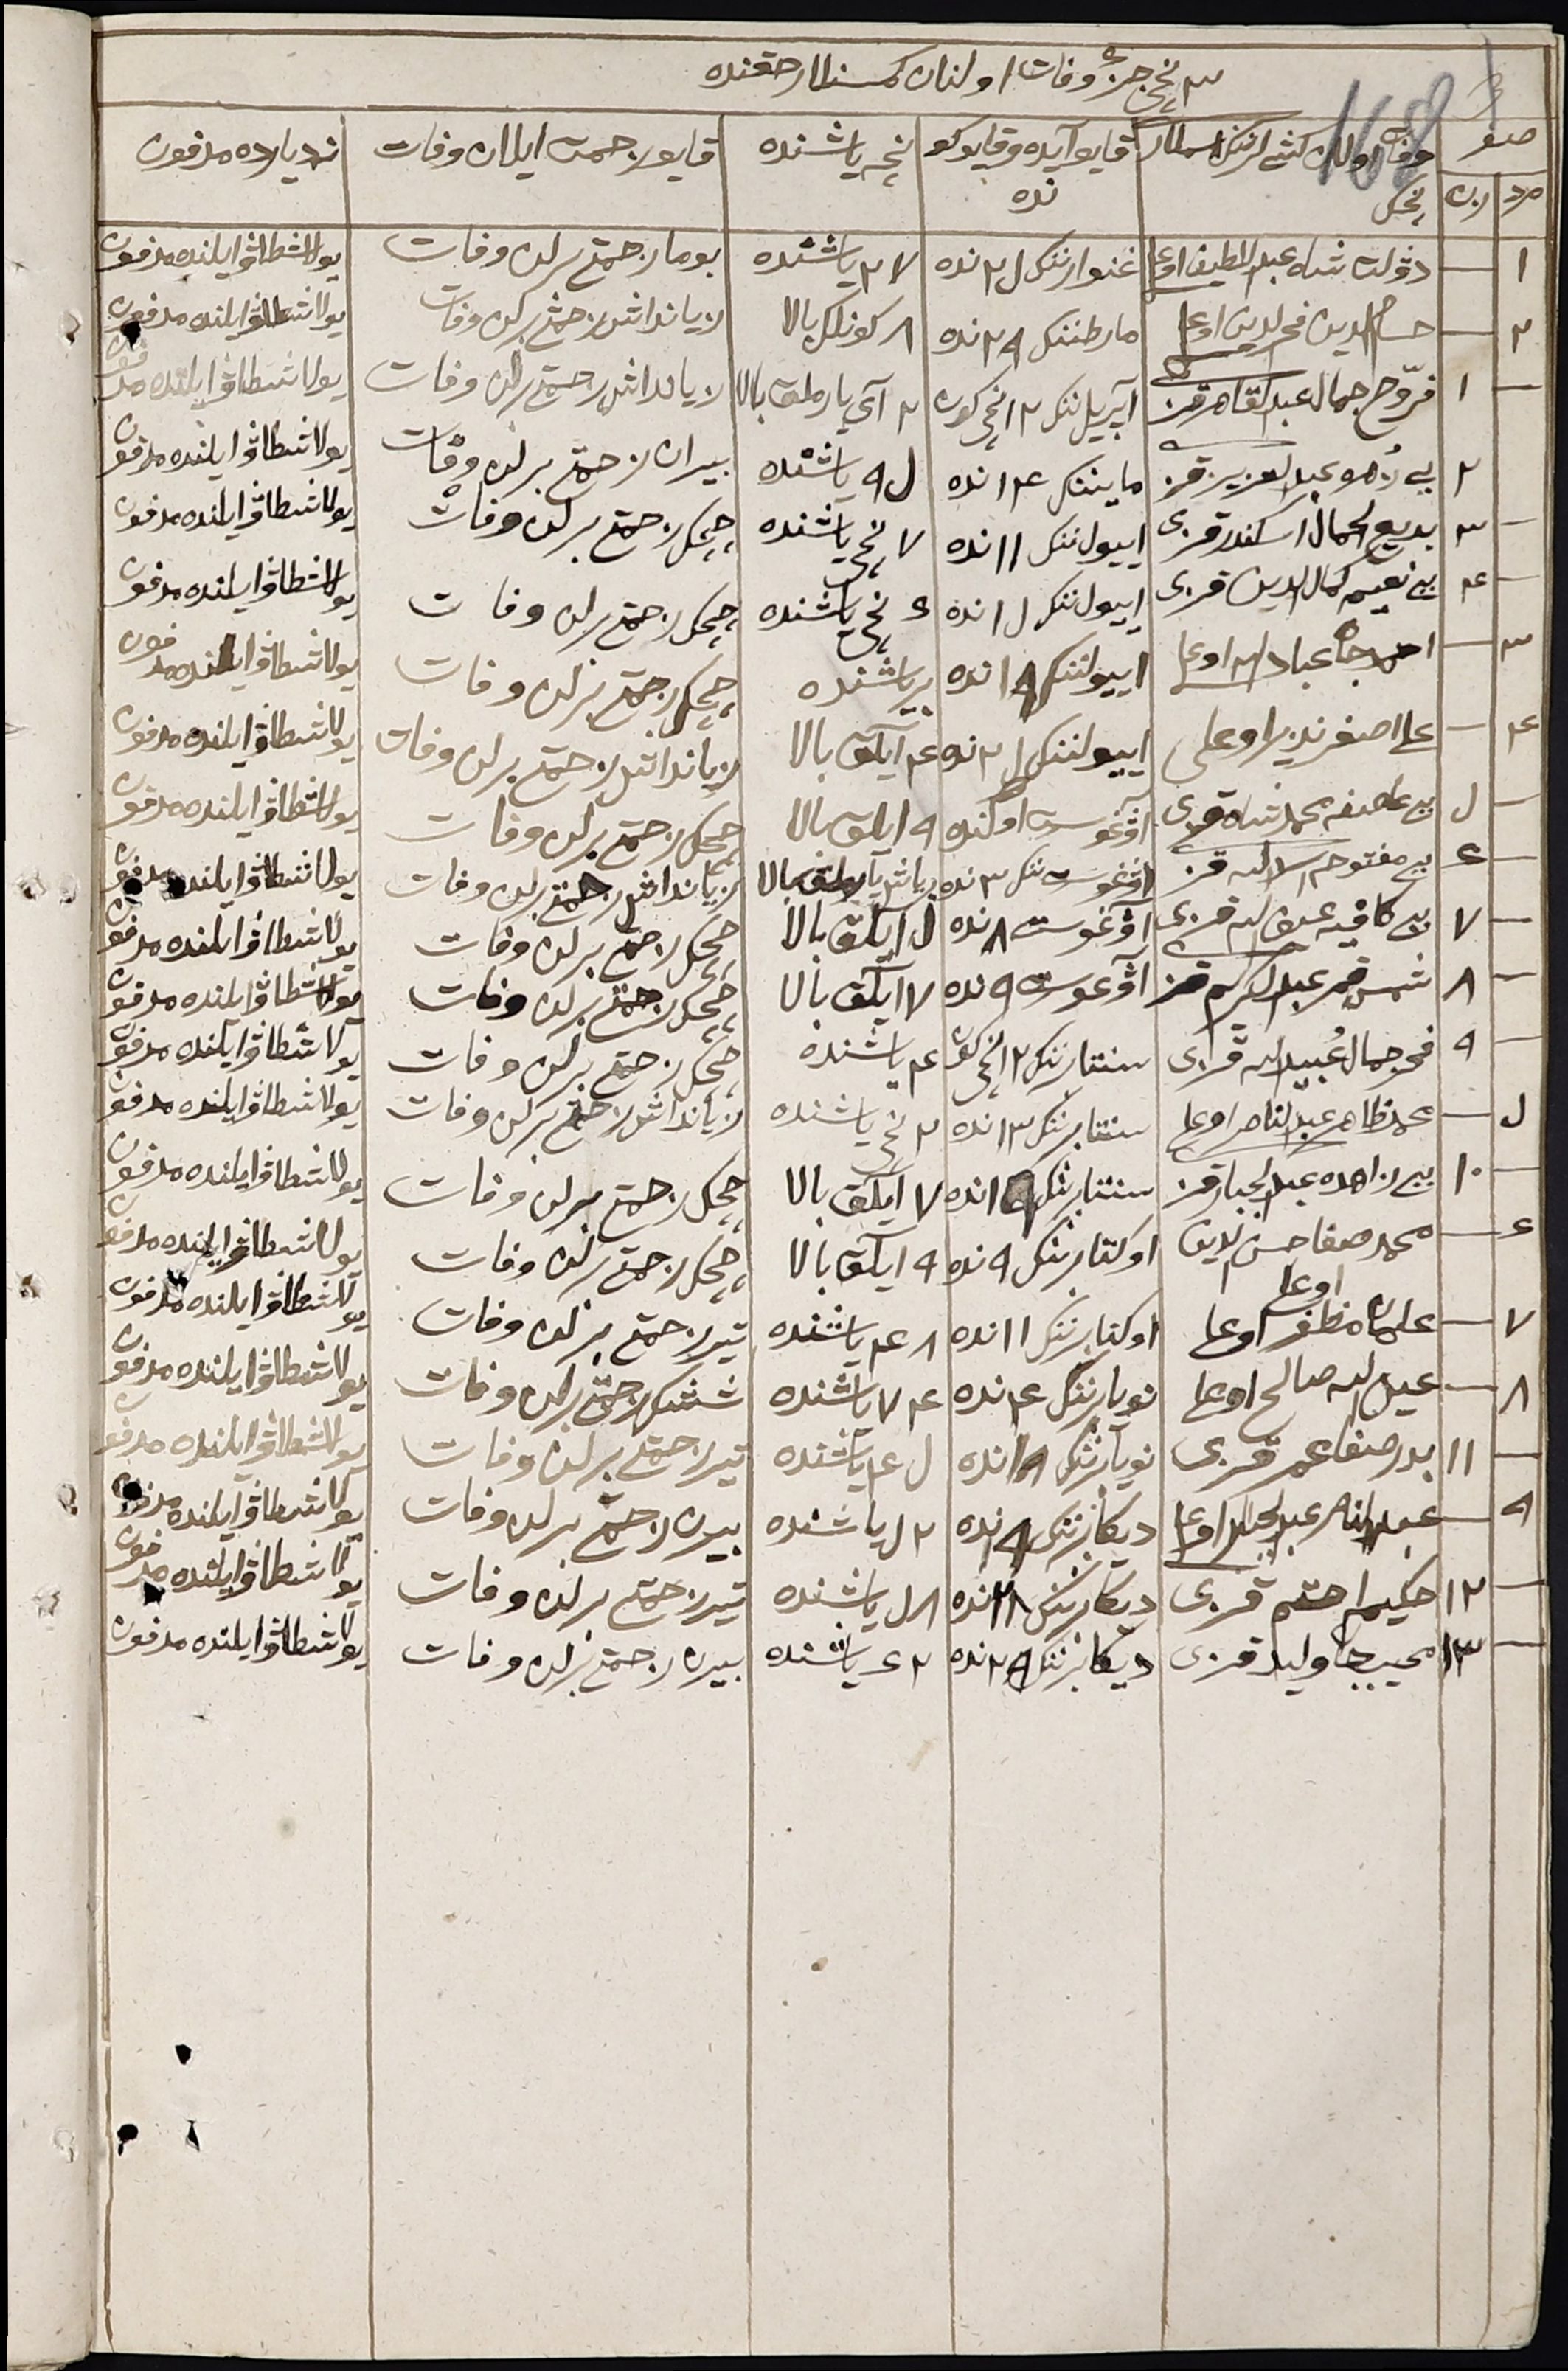 ٣ نچی جزء وفات اولنان کمسنه‌لار حقنده
168
صنف
مرد
زن
وفات اولان کشیلرننک اسملار
نچک
قایو آیده و قایو کو
نده
نچه یاشنده
قایو زحمت ایلان وفات
نه دیارده مدفون
١ دولت شاه عبد اللطیف اوغلی غنوارننک ٢٥ نده ٧٢ یاشنده بوما زحمتی برلن وفات یولاشطاو ایلنده مدفون
٢ حسام الدین فخر الدین اوغلی مارطننک ٢٩ نده ٨ کونلک بالا یانداش زحمتی برلن وفات یولاشطاو ایلنده مدفون
١ فروح جمال عبد القاهر قزی آپریل ننک ٢ انچی کون ٢ آی یارملق بالا یانداش زحمتی برلن وفات یولاشطاو ایلنده مدفون
٢ بی زهره عبد العزیز قزی مایننک ١٤ نده ٥٩ یاشنده بیزان زحمتی برلن وفات یولاشطاو ایلنده مدفون
٣ بدیع الجمال اسکندر قزی اییول ننک ١١ نده ٧ نچی یاشنده چچک زحمتی برلن وفات یولاشطاو ایلنده مدفون
٤ بی نعیمه کمال الدین قزی اییول ننک ١٥ نده ٦ نچی یاشنده چچک زحمتی برلن وفات یولاشطاو ایلنده مدفون
٣ احمد جان عباد الله اوغلی اییولننک ١٩ نده بر یاشنده چچک زحمتی برلن وفات یولاشطاو ایلنده مدفون
٤ علی اصغر نذیر اوغلی اییولننک ٢٥ نده ٤ آیلق بالا یانداش زحمتی برلن وفات یولاشطاو ایلنده مدفون
٥ بی عاصفه محمد شاه قزی آوغوست اولنده ٩ ایلق بالا چچک زحمتی برلن وفات یولاشطاو ایلنده مدفون
٦ بی مفتوحه اسد الله قزی آوغوست ننک ٣ نده بر یاش یارملق بالا یانداش زحمتی برلن وفات یولاشطاو ایلنده مدفون
٧ بی کافیه عین الله قزی آوغوست ٨ نده ٥ ایلق بالا چچک زحمتی برلن وفات یولاشطاو ایلنده مدفون
٨ شمس قمر عبد الکریم قزی آوغوست ٩ نده ٧ ایلق بالا چچک زحمتی برلن وفات یولاشطاو ایلنده مدفون
٩ فخر جمال عبید الله قزی سنتابرننک ٢ انچی کون ٤ یاشنده چچک زحمتی برلن وفات یولاشطاو ایلنده مدفون
٥ محمد ظاهر عبد الناصر اوغلی سنتابرننک ١٣ نده ٢ نچی یاشنده یانداش زحمتی برلن وفات یولاشطاو ایلنده مدفون
١٠ بی زاهده عبد الجبار قزی سنتابرننک ١٩ نده ٧ ایلق بالا چچک زحمتی برلن وفات یولاشطاو ایلنده مدفون
٦ محمد صفا حسن الدین اوغلی اوکتابرننک ٩ نده ٩ ایلق بالا چچک زحمتی برلن وفات یولاشطاو ایلنده مدفون
٧ علیجان مظفر اوغلی اوکتابرننک ١١ نده ٤٨ یاشنده تیر زحمتی برلن وفات یولاشطاو ایلنده مدفون
٨ عین الله صالح اوغلی نویابرننک ٤ نده ٧٤ یاشنده ششک زحمتی برلن وفات یولاشطاو ایلنده مدفون
١١ بدر صفا عمر قزی نویابرننک ١٩ نده ٤٥ یاشنده تیر زحمتی برلن وفات یولاشطاو ایلنده مدفون
٩ عبد الله عبد الجلیل اوغلی دیکابرننک ١٩ نده ٥٢ یاشنده بیزن زحمتی برلن وفات یولاشطاو ایلنده مدفون
١٢ حکیمه قزی دیکابرننک نده ٥٨ یاشنده تیر زحمتی برلن وفات یولاشطاو ایلنده مدفون
١٣ محیب جان ولید قزی دیکابرننک ٢٩ نده ٦٢ یاشنده بیزن زحمتی برلن وفات یولاشطاو ایلنده مدفون